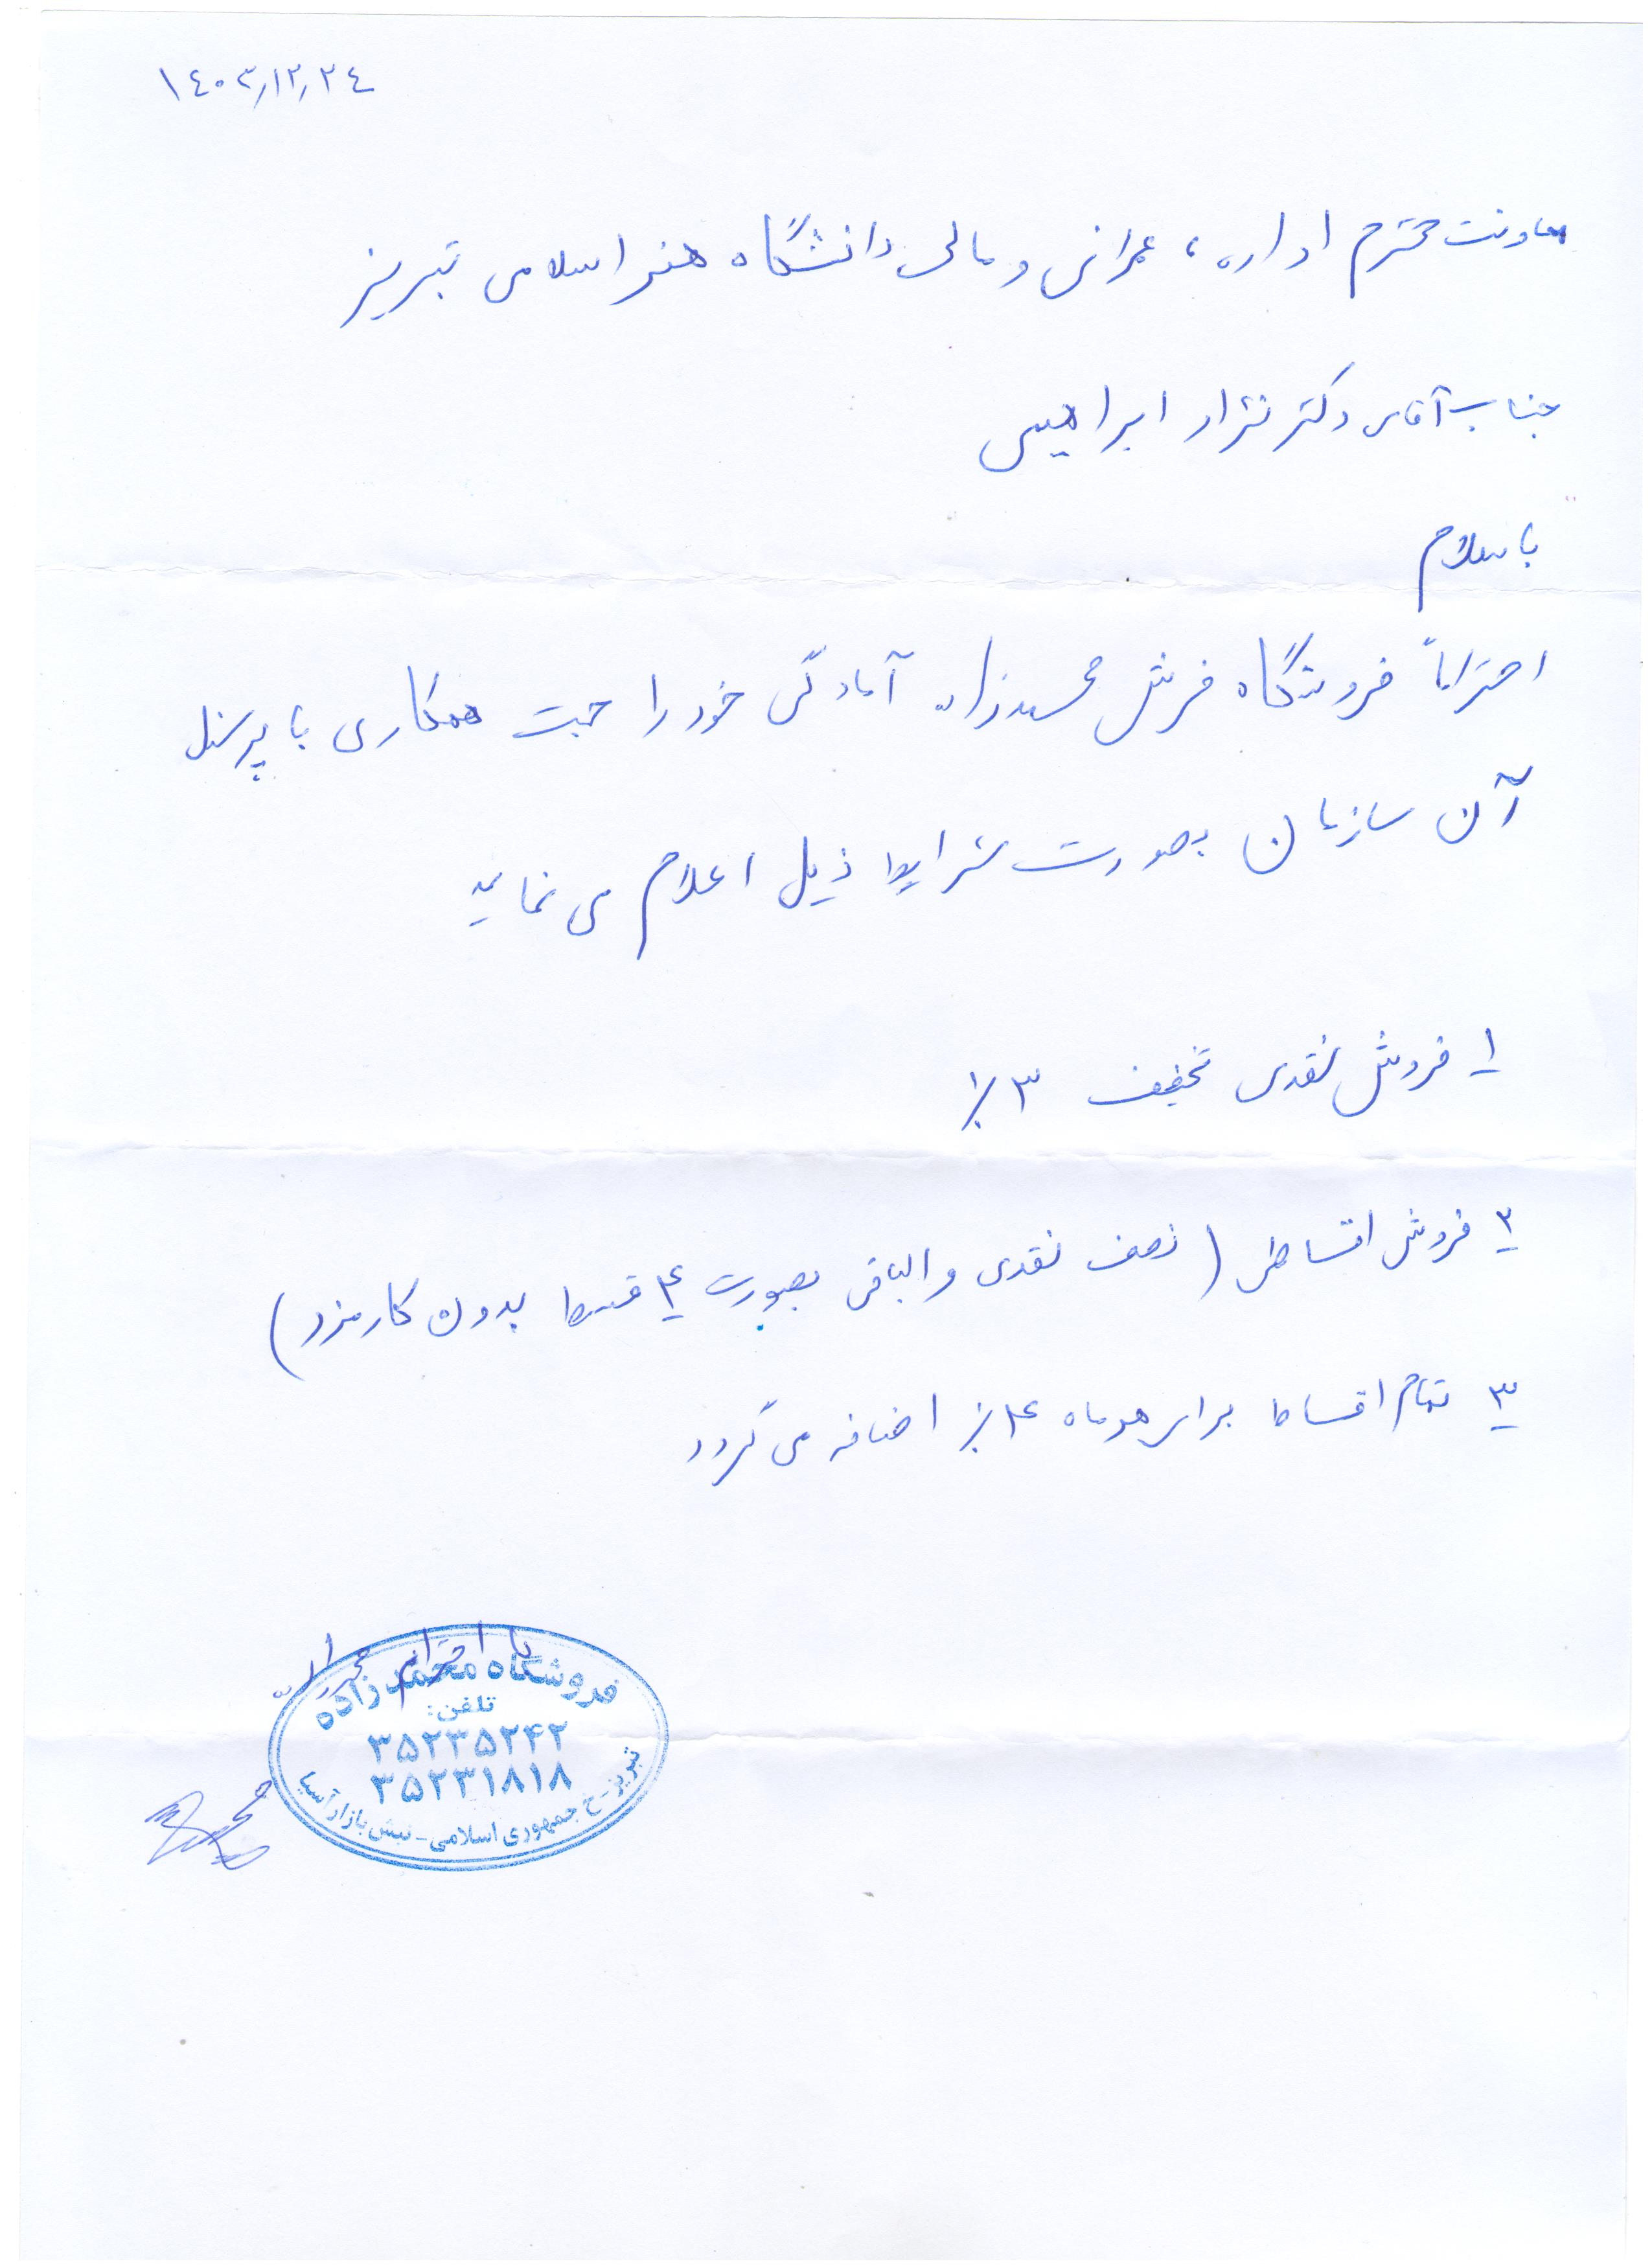 ۱۴۰۳,۱۲,۲۴
معاونت محترم اداری، عمرانی و مالی دانشگاه هنر اسلامی تبریز
جناب آقای دکتر نژاد ابراهیمی
با سلام
احتراماً فروشگاه فرش محمدزاده آمادگی خود را جهت همکاری با پرسنل
آن سازمان بصورت شرایط ذیل اعلام می نماید
۱ فروش نقدی تخفیف ۳٪
۲ فروش اقساطی (نصف نقدی و الباقی بصورت ۴ قسط بدون کارمزد)
۳ تمام اقساط برای هر ماه ۴٪ اضافه می گردد
با احترام
فروشگاه محمدزاده
تلفن:
۳۵۲۳۵۲۴۲
۳۵۲۳۱۸۱۸
تبریز-خ جمهوری اسلامی-نبش بازار آسیا